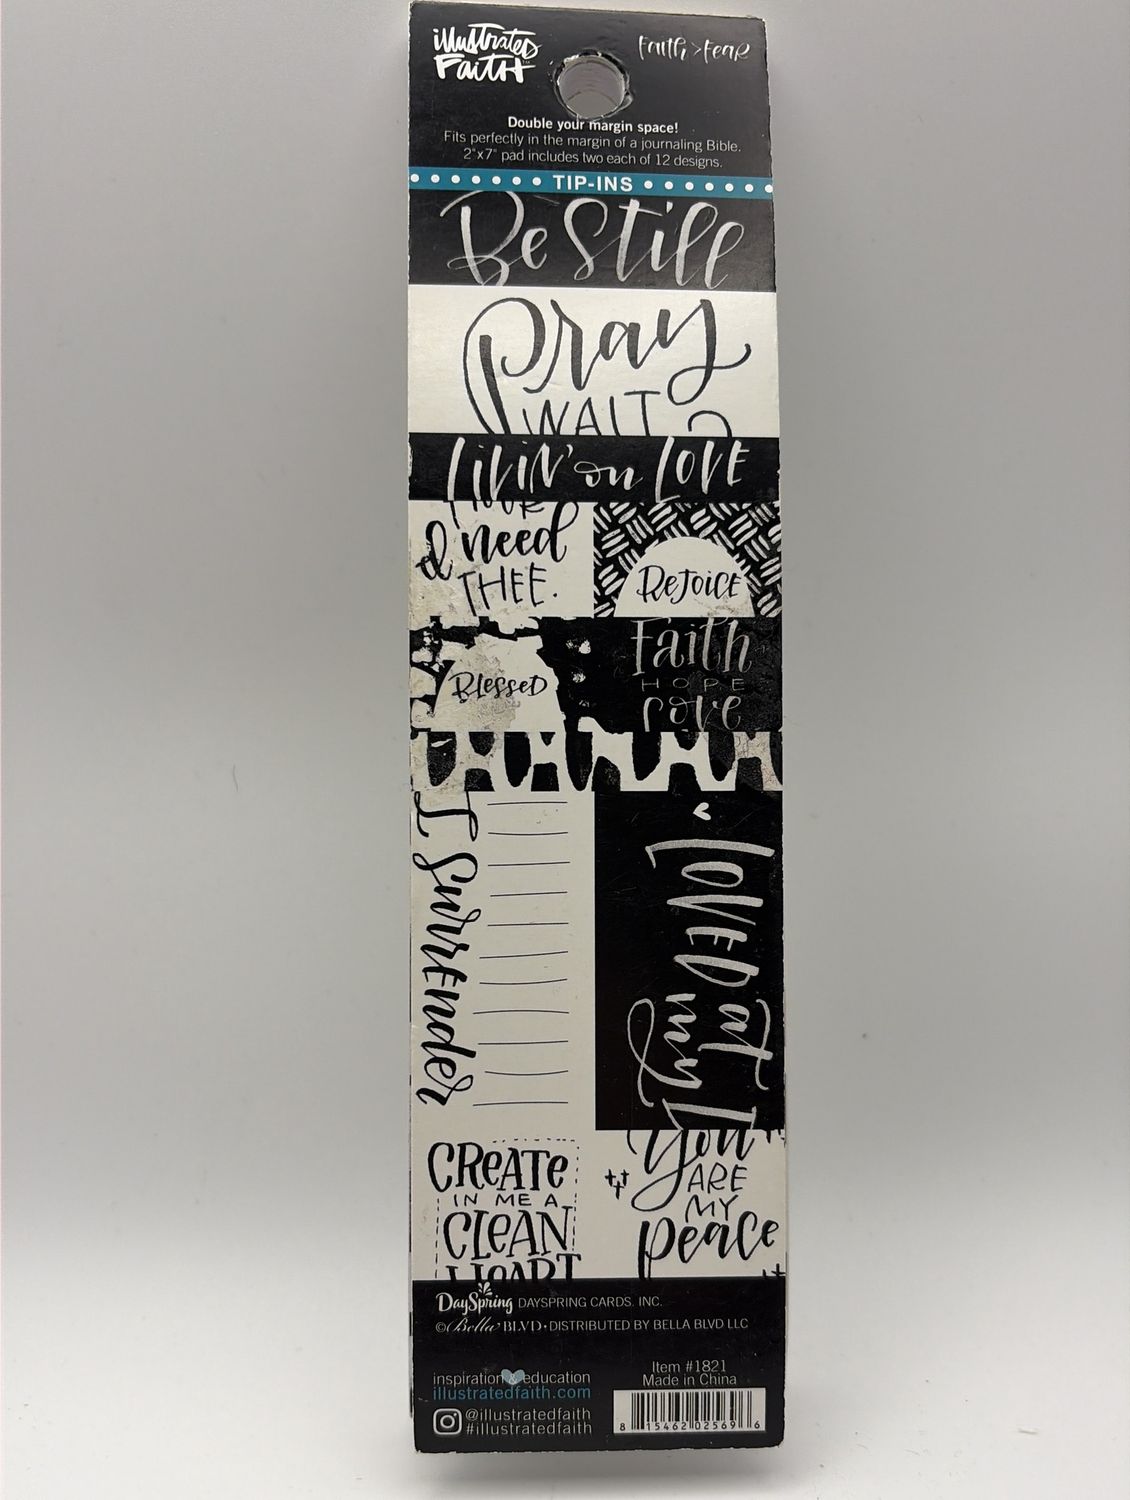 illustrated
Faith™
Faith > Fear
Double your margin space!
Fits perfectly in the margin of a journaling Bible.
2"x7" pad includes two each of 12 designs.
TIP-INS
Be Still
Pray
WAIT
LiViN' on LOVE
I need
THEE.
ReJoiCE
Blessed
Faith
HOPE
love
I Surrender
loVED at
my
CREATE
IN ME A
CLEAN
HEART
You
ARE
MY
peace
DaySpring DAYSPRING CARDS, INC.
© Bella BLVD • DISTRIBUTED BY BELLA BLVD LLC
Item #1821
Made in China
inspiration education
illustratedfaith.com
@illustratedfaith
#illustratedfaith
8 15462 02569 6